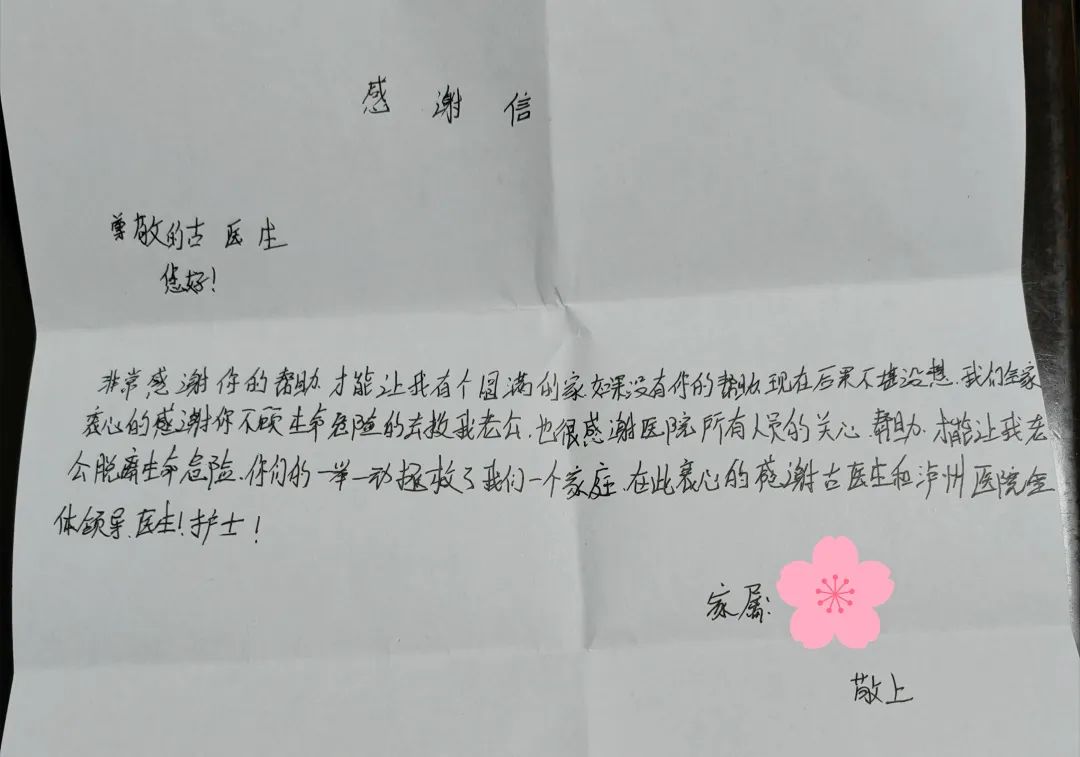 感谢信
尊敬的古医生
您好!
非常感谢你的帮助.才能让我有个圆满的家如果没有你的帮助.现在后果不堪设想.我们全家
衷心的感谢你不顾生命危险的去救我老公.也很感谢医院所有人员的关心.帮助.才能让我老
公脱离生命危险.你们的一举一动拯救了我们一个家庭.在此衷心的感谢古医生和泸州医院全
体领导.医生!护士!
家属:
敬上